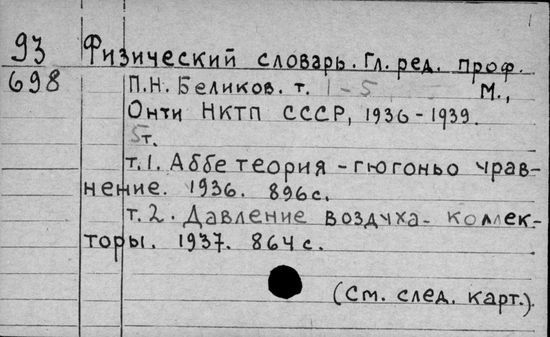 93 Физический словарь. Гл. ред. проф.
698 П.Н. Беликов. т. 1-5 М.,
Онти НКТП СССР, 1936-1939.
5т.
т.1. Аббе теория - гюгоньо урав-
нение. 1936. 896с.
т.2. Давление воздуха- коллек-
торы. 1937. 864с.
(См. след. карт.).